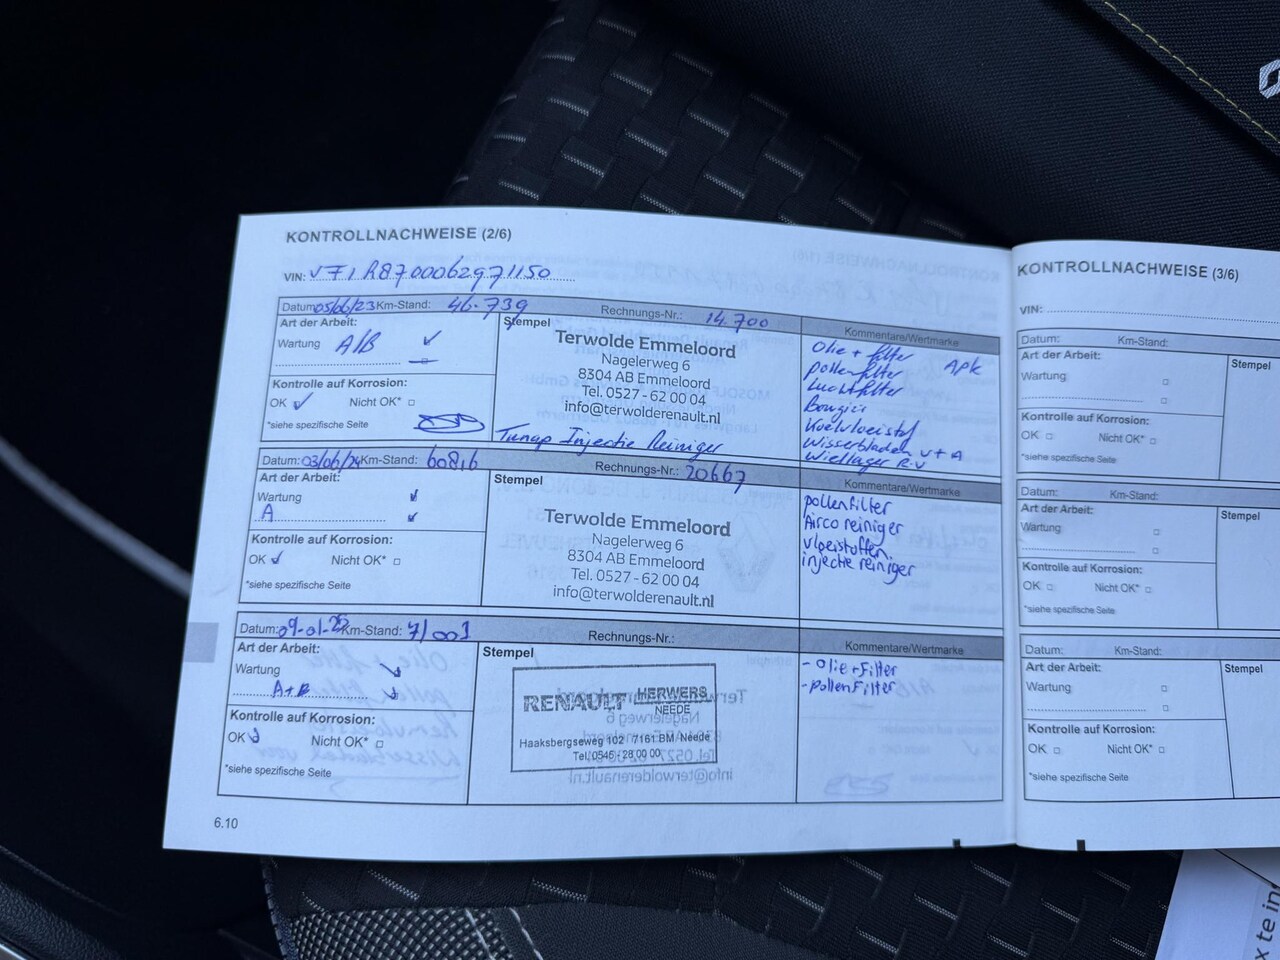 KONTROLLNACHWEISE (2/6)
VIN: VF1R8700062971150
Datum: 05/06/23 Km-Stand: 46.739 Rechnungs-Nr.: 14.700
Art der Arbeit:
Wartung A/B
Kontrolle auf Korrosion:
OK Nicht OK*
*siehe spezifische Seite
Stempel
Terwolde Emmeloord
Nagelerweg 6
8304 AB Emmeloord
Tel. 0527 - 62 00 04
info@terwolderenault.nl
Tunap Injectie Reiniger
Kommentare/Wertmarke
Olie + filter APK
pollenfilter
Luchtfilter
Bougies
Koelvloeistof
Wisserbladen V+A
Wiellager R.V
Datum: 03/06/24 Km-Stand: 60816 Rechnungs-Nr.: 20667
Art der Arbeit:
Wartung
A
Kontrolle auf Korrosion:
OK Nicht OK*
*siehe spezifische Seite
Stempel
Terwolde Emmeloord
Nagelerweg 6
8304 AB Emmeloord
Tel. 0527 - 62 00 04
info@terwolderenault.nl
Kommentare/Wertmarke
pollenfilter
Airco reiniger
vloeistoffen.
injectie reiniger
Datum: 09-01- Km-Stand: 71003 Rechnungs-Nr.:
Art der Arbeit:
Wartung
A+B
Kontrolle auf Korrosion:
OK Nicht OK*
*siehe spezifische Seite
Stempel
RENAULT HERWERS
NEEDE
Haaksbergseweg 102 / 7161 BM Neede
Tel. 0545 - 28 00 00
Kommentare/Wertmarke
- Olie + Filter
- pollenFilter
6.10
KONTROLLNACHWEISE (3/6)
VIN:
Datum: Km-Stand:
Art der Arbeit:
Wartung
Kontrolle auf Korrosion:
OK Nicht OK*
*siehe spezifische Seite
Stempel
Datum: Km-Stand:
Art der Arbeit:
Wartung
Kontrolle auf Korrosion:
OK Nicht OK*
*siehe spezifische Seite
Stempel
Datum: Km-Stand:
Art der Arbeit:
Wartung
Kontrolle auf Korrosion:
OK Nicht OK*
*siehe spezifische Seite
Stempel